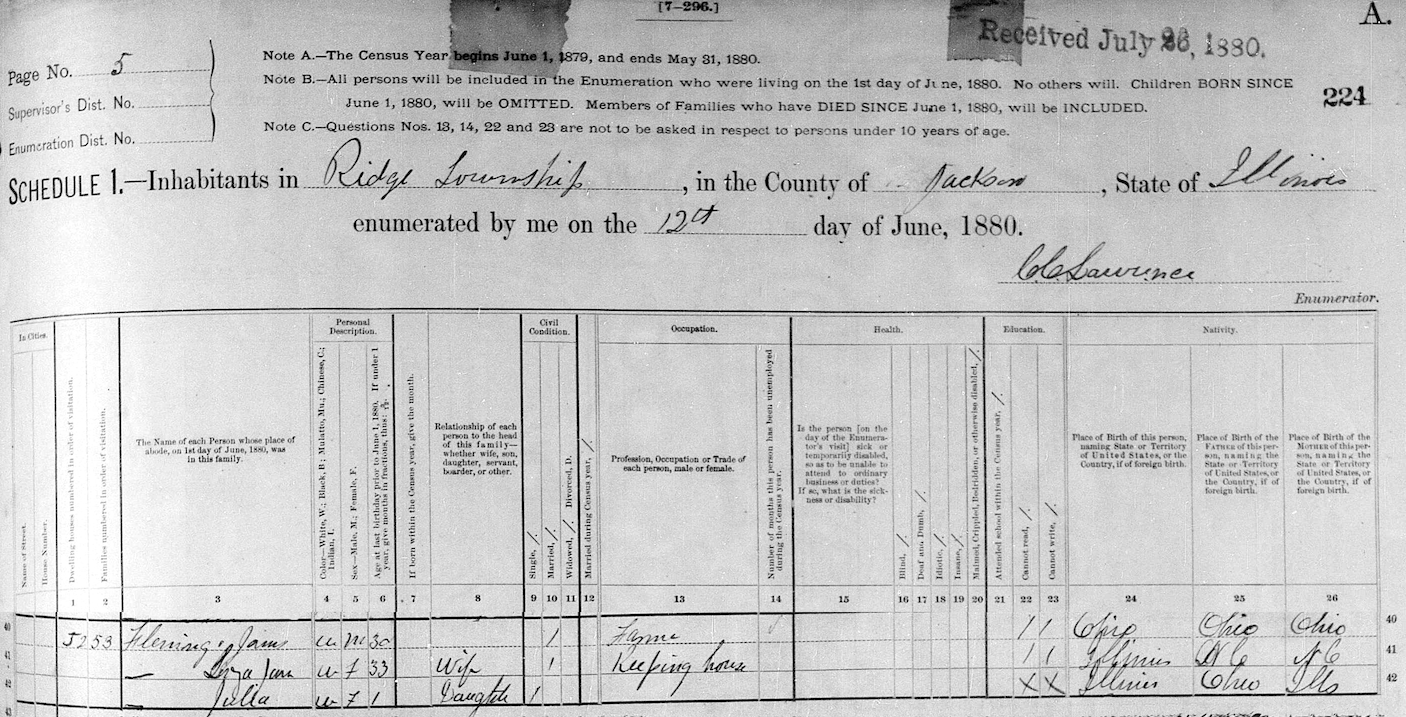 [7-296.]
A.
Received July 26, 1880.
Page No. 5
Supervisor's Dist. No.
Enumeration Dist. No.
Note A.—The Census Year begins June 1, 1879, and ends May 31, 1880.
Note B.—All persons will be included in the Enumeration who were living on the 1st day of June, 1880. No others will. Children BORN SINCE
June 1, 1880, will be OMITTED. Members of Families who have DIED SINCE June 1, 1880, will be INCLUDED.
Note C.—Questions Nos. 13, 14, 22 and 23 are not to be asked in respect to persons under 10 years of age.
224
SCHEDULE 1.—Inhabitants in Ridge Township, in the County of Jackson, State of Illinois
enumerated by me on the 12th day of June, 1880.
C.C. Lawrence
Enumerator.
In Cities.
Name of Street.
House Number.
Dwelling houses numbered in order of visitation.
Families numbered in order of visitation.
The Name of each Person whose place of
abode, on 1st day of June, 1880, was
in this family.
Personal
Description.
Color—White, W.; Black, B.; Mulatto, Mu.; Chinese, C.;
Indian, I.
Sex—Male, M.; Female, F.
Age at last birthday prior to June 1, 1880. If under 1
year, give months in fractions, thus: 3/12.
If born within the Census year, give the month.
Relationship of each
person to the head
of this family—
whether wife, son,
daughter, servant,
boarder, or other.
Civil
Condition.
Single, /.
Married, /.
Widowed, /. Divorced, D.
Married during Census year, /.
Occupation.
Profession, Occupation or Trade of
each person, male or female.
Number of months this person has been unemployed
during the Census year.
Health.
Is the person [on the
day of the Enumera-
tor's visit] sick or
temporarily disabled,
so as to be unable to
attend to ordinary
business or duties?
If so, what is the sick-
ness or disability?
Blind, /.
Deaf and Dumb, /.
Idiotic, /.
Insane, /.
Maimed, Crippled, Bedridden, or otherwise disabled, /.
Education.
Attended school within the Census year, /.
Cannot read, /.
Cannot write, /.
Nativity.
Place of Birth of this person,
naming State or Territory
of United States, or the
Country, if of foreign birth.
Place of Birth of the
FATHER of this per-
son, naming the
State or Territory
of United States, or
the Country, if of
foreign birth.
Place of Birth of the
MOTHER of this per-
son, naming the
State or Territory
of United States, or
the Country, if of
foreign birth.
1 2 3 4 5 6 7 8 9 10 11 12 13 14 15 16 17 18 19 20 21 22 23 24 25 26
40 52 53 Fleming, James W M 30 / Farmer / / Ohio Ohio Ohio 40
41 — Liza Jane W F 33 Wife / Keeping house / / Illinois N C N C 41
42 — Julia W F 1 Daughter / X X Illinois Ohio Ills 42
43